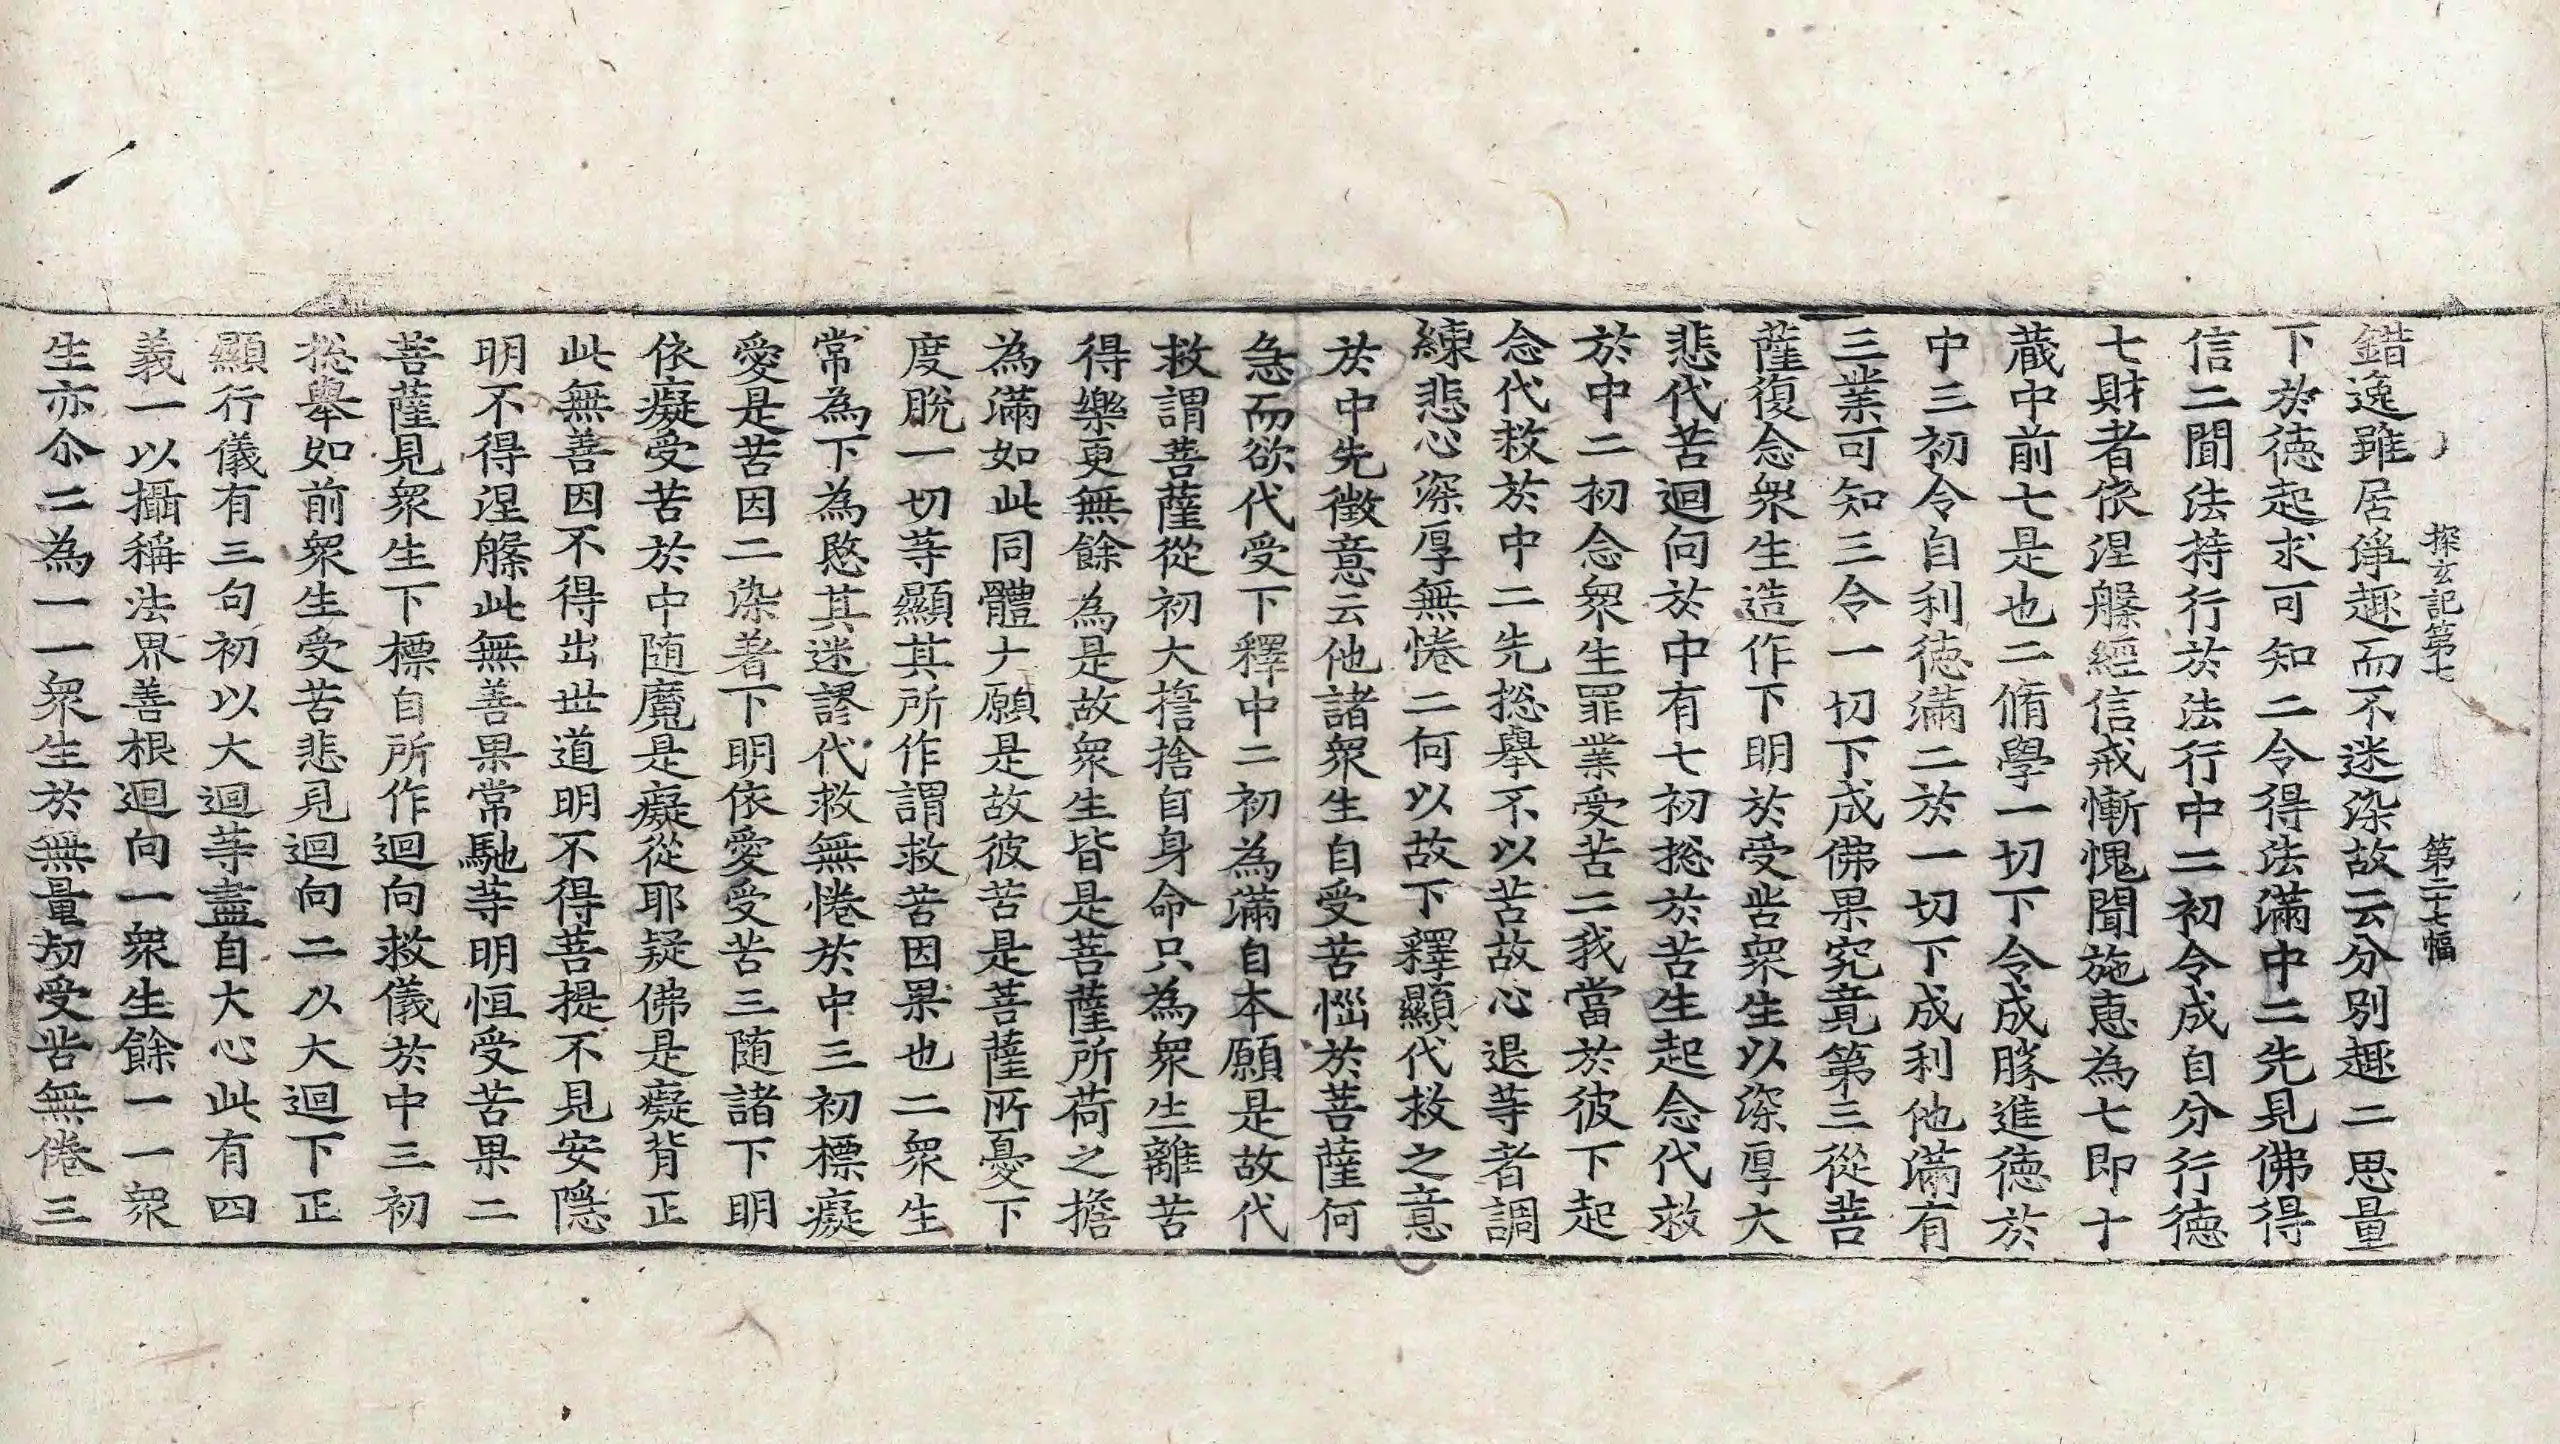 探玄記第七　第二十七幅
錯逸雖居淨趣而不迷染故云分別趣二思量
下於徳起求可知二令得法滿中二先見佛得
信二聞法持行於法行中二初令成自分行徳
七財者依涅槃經信戒慚愧聞施恵為七即十
蔵中前七是也二脩學一切下令成勝進徳於
中三初令自利徳滿二於一切下成利他滿有
三業可知三令一切下成佛果究竟第三從菩
薩復念衆生造作下明於受苦衆生以深厚大
悲代苦迴向於中有七初捴於苦生起念代救
於中二初念衆生罪業受苦二我當於彼下起
念代救於中二先捴舉不以苦故心退等者調
練悲心深厚無惓二何以故下釋顯代救之意
於中先徵意云他諸衆生自受苦惱於菩薩何
急而欲代受下釋中二初為滿自本願是故代
救謂菩薩從初大捨捨自身命只為衆生離苦
得樂更無餘為是故衆生皆是菩薩所荷之擔
為滿如此同體大願是故彼苦是菩薩所憂下
度脫一切等顯其所作謂救苦因果也二衆生
常為下為愍其迷謬代救無惓於中三初標癡
愛是苦因二染著下明依愛受苦三随諸下明
依癡受苦於中随魔是癡從耶疑佛是癡背正
此無善因不得出世道明不得菩提不見安隱
明不得涅槃此無善果常馳等明恒受苦果二
菩薩見衆生下標自所作迴向救儀於中三初
捴舉如前衆生受苦悲見迴向二以大迴下正
顯行儀有三句初以大迴等盡自大心此有四
義一以攝稱法界善根迴向一衆生餘一一衆
生亦尒二為一一衆生於無量劫受苦無惓三